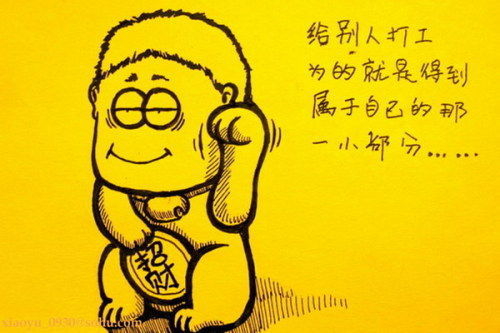 给别人打工
为的就是得到
属于自己的那
一小部分……
招财
xiaoyu_0930@sohu.com